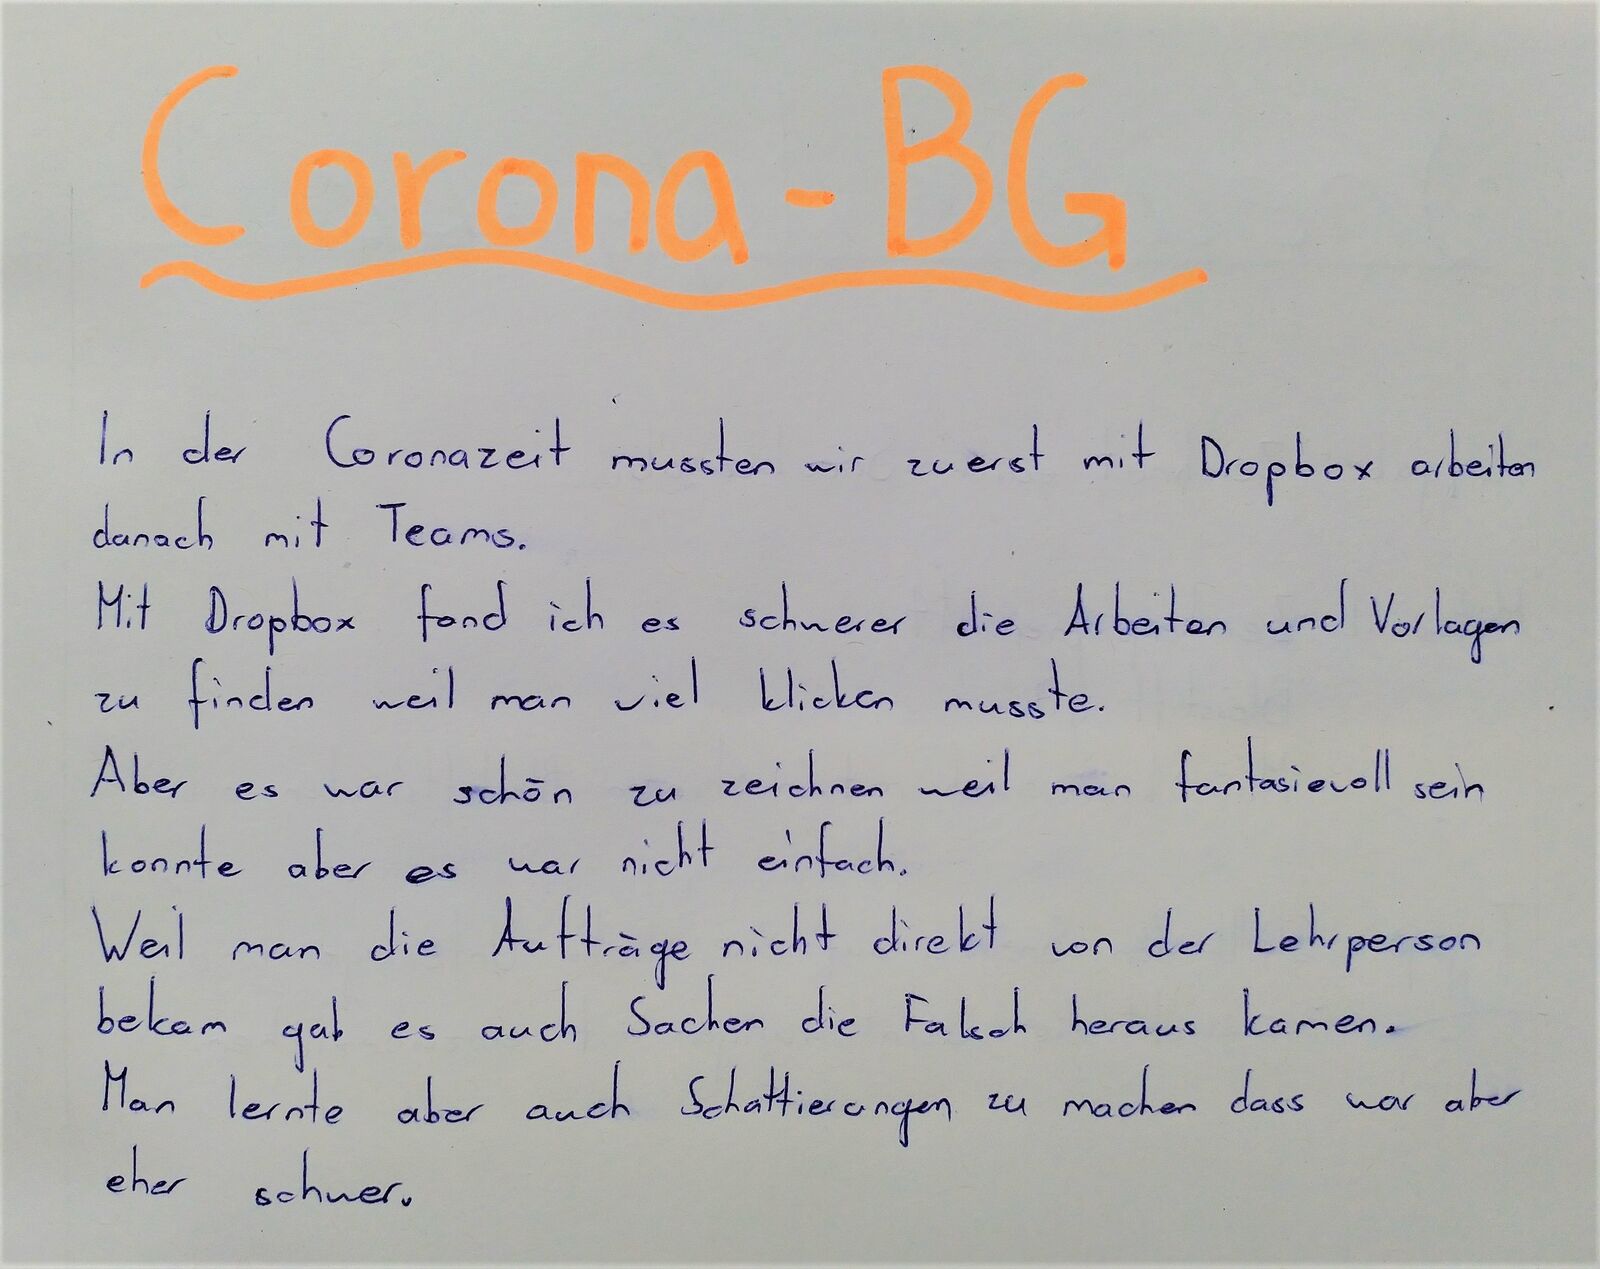 Corona-BG
In der Coronazeit mussten wir zuerst mit Dropbox arbeiten
danach mit Teams.
Mit Dropbox fand ich es schwerer die Arbeiten und Vorlagen
zu finden weil man viel klicken musste.
Aber es war schön zu zeichnen weil man fantasievoll sein
konnte aber es war nicht einfach.
Weil man die Aufträge nicht direkt von der Lehrperson
bekam gab es auch Sachen die Falsch heraus kamen.
Man lernte aber auch Schattierungen zu machen dass war aber
eher schwer.